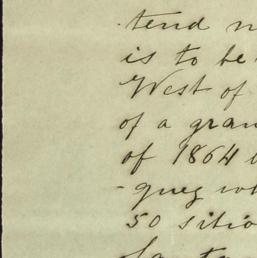 tend n
is to be
West of
of a gran
of 1864
-quez wh
50 sitio